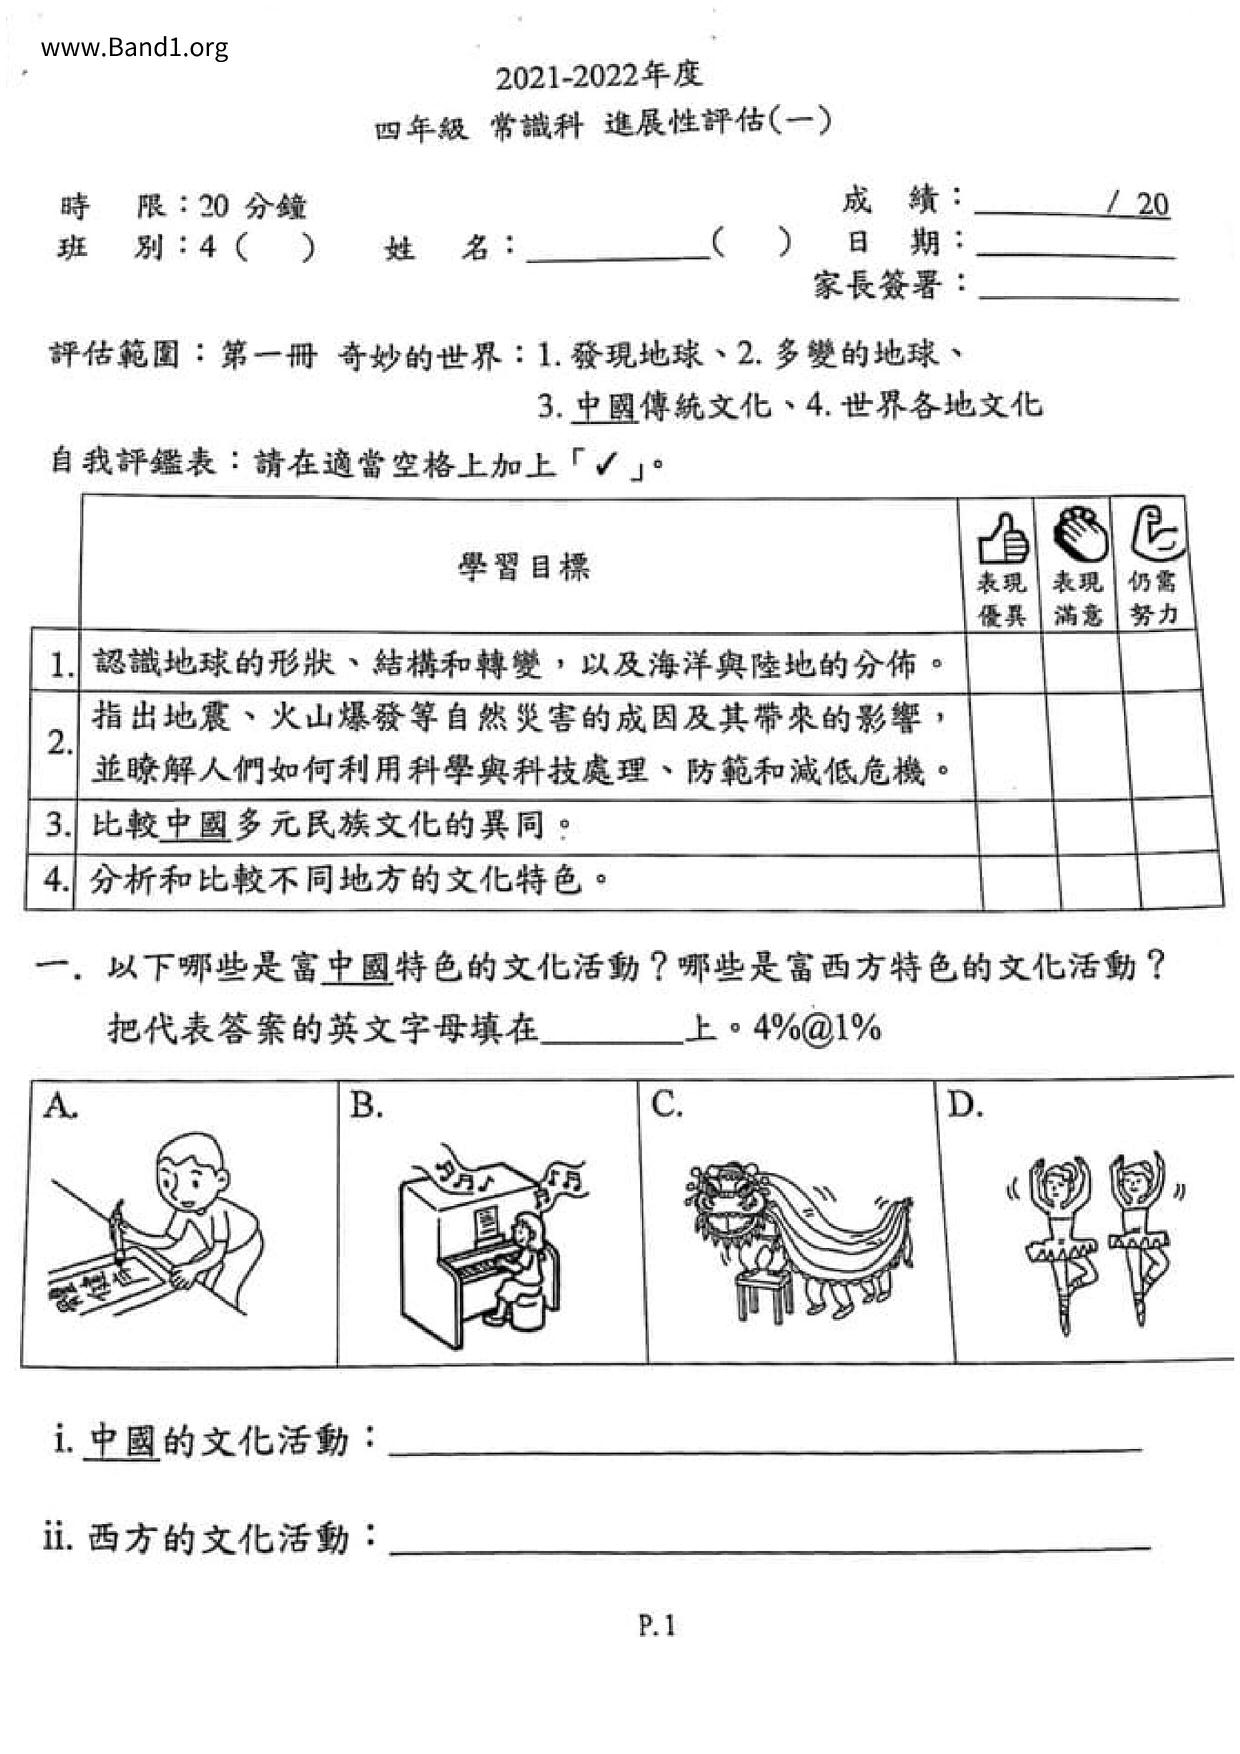 www.Band1.org
2021-2022年度
四年級 常識科 進展性評估(一)
時 限：20 分鐘 成 績：______/ 20
班 別：4 ( ) 姓 名：__________( ) 日 期：__________
家長簽署：__________
評估範圍：第一冊 奇妙的世界：1. 發現地球、2. 多變的地球、
3. 中國傳統文化、4. 世界各地文化
自我評鑑表：請在適當空格上加上「✓」。
學習目標
表現優異
表現滿意
仍需努力
1. 認識地球的形狀、結構和轉變，以及海洋與陸地的分佈。
2. 指出地震、火山爆發等自然災害的成因及其帶來的影響，
並瞭解人們如何利用科學與科技處理、防範和減低危機。
3. 比較中國多元民族文化的異同。
4. 分析和比較不同地方的文化特色。
一. 以下哪些是富中國特色的文化活動？哪些是富西方特色的文化活動？
把代表答案的英文字母填在________上。4%@1%
A.
B.
C.
D.
i. 中國的文化活動：____________________
ii. 西方的文化活動：____________________
P.1